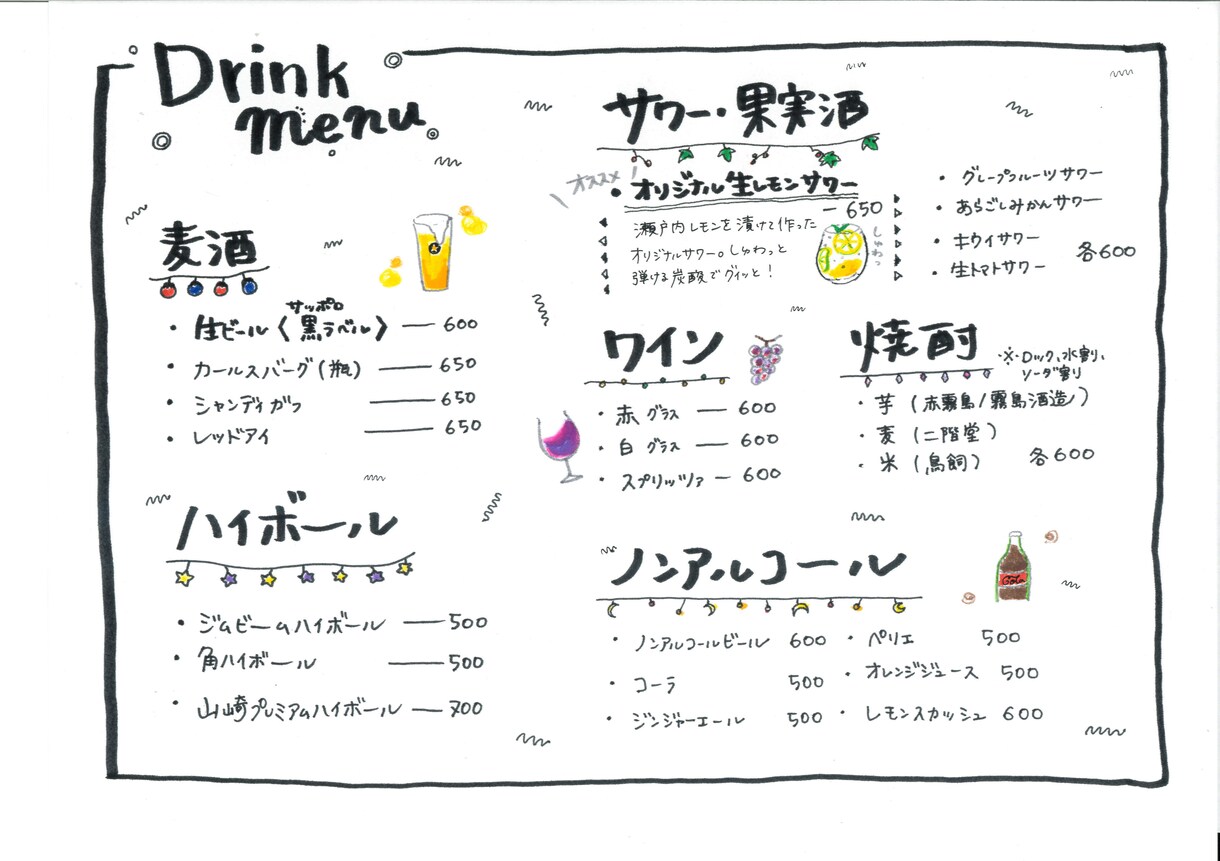 Drink
menu
麦酒
・生ビール〈サッポロ黒ラベル〉 — 600
・カールスバーグ(瓶) — 650
・シャンディガフ — 650
・レッドアイ — 650
ハイボール
・ジムビームハイボール — 500
・角ハイボール — 500
・山崎プレミアムハイボール — 700
サワー・果実酒
オススメ
・オリジナル生レモンサワー
— 650
瀬戸内レモンを漬けて作った
オリジナルサワー。しゅわっと
弾ける炭酸でグイッと!
しゅわっ
・グレープフルーツサワー
・あらごしみかんサワー
・キウイサワー
・生トマトサワー
各600
ワイン
・赤 グラス — 600
・白 グラス — 600
・スプリッツァ — 600
焼酎
※ロック、水割り、
ソーダ割り
・芋 (赤霧島/霧島酒造)
・麦 (二階堂)
・米 (鳥飼)
各600
ノンアルコール
Cola
・ノンアルコールビール 600
・コーラ 500
・ジンジャーエール 500
・ペリエ 500
・オレンジジュース 500
・レモンスカッシュ 600